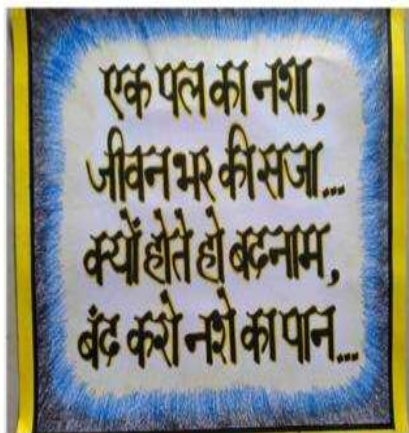 एक पल का नशा,
जीवन भर की सजा...
क्यों होते हो बदनाम,
बँद करो नशे का पान...